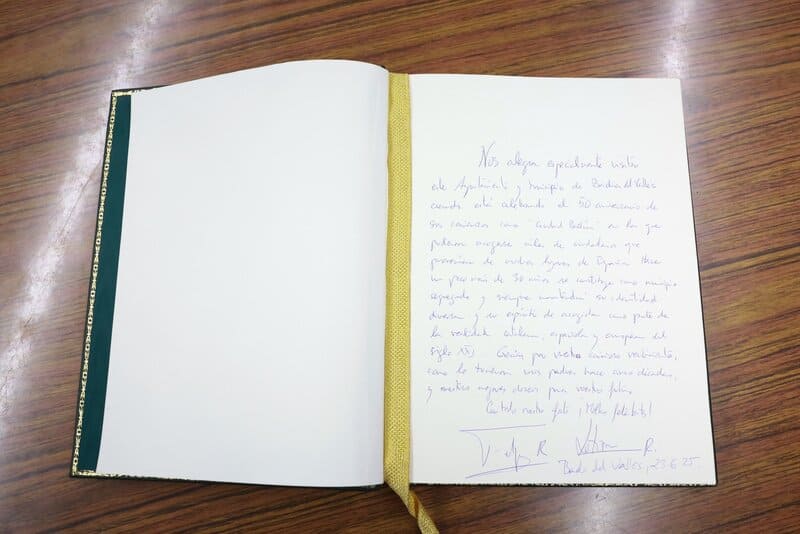 Nos alegra especialmente visitar
este Ayuntamiento y municipio de Badia del Vallès
cuando está celebrando el 50 aniversario de
sus comienzos como "Ciudad Badía" en la que
pudieron acogerse miles de ciudadanos que
provenían de muchos lugares de España. Hace
un poco más de 30 años se constituyó como municipio
segregado y siempre su identidad
diversa y su espíritu de acogida como parte de
la realidad catalana, española y europea del
siglo XXI. Gracias por vuestro cariñoso recibimiento,
como lo tuvieron mis padres hace cinco décadas,
y nuestros mejores deseos para vuestro futuro.
Con todo nuestro ¡Moltes felicitats!
Felipe R Letizia R.
Badia del Vallès, 23.6.25